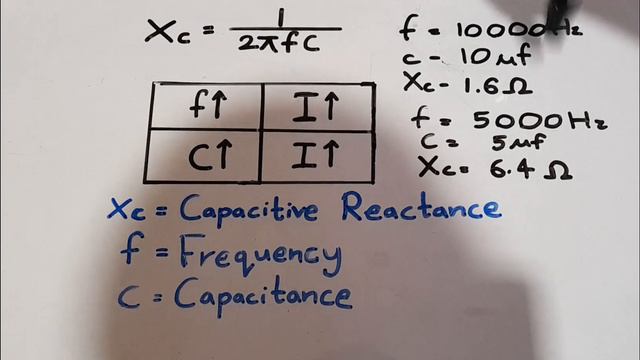 Xc = 1/2πfC
f↑ I↑
C↑ I↑
f = 10000Hz
c - 10μf
Xc - 1.6Ω
f = 5000Hz
C = 5μf
Xc = 6.4Ω
Xc = Capacitive Reactance
f = Frequency
C = Capacitance